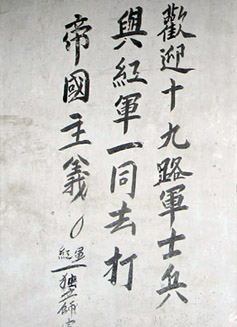 歡迎十九路軍士兵
與紅軍一同去打
帝國主義！
紅軍獨師